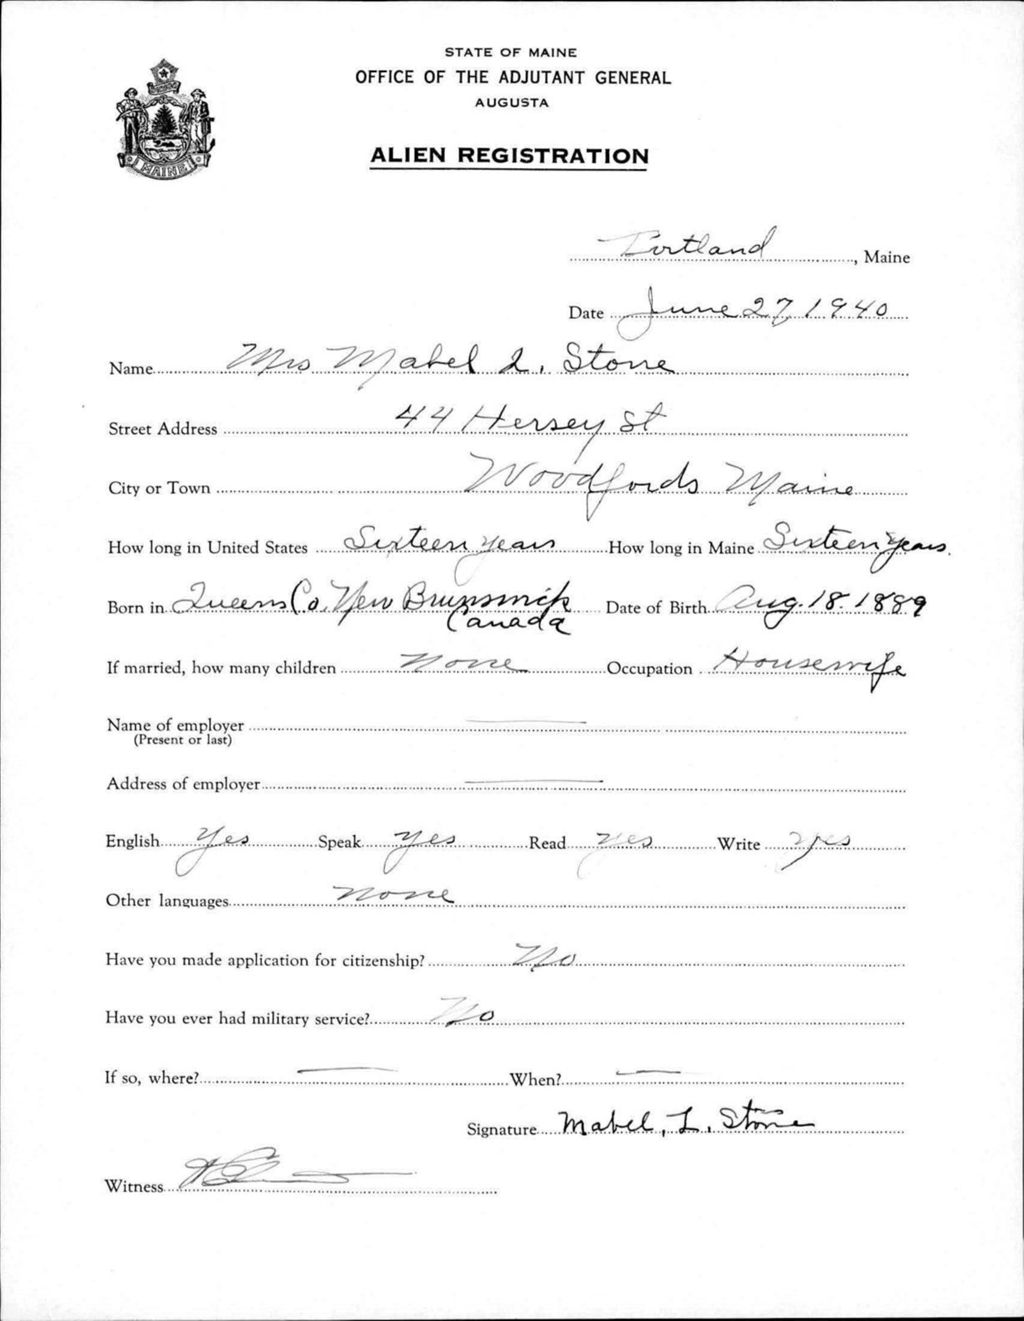 STATE OF MAINE
OFFICE OF THE ADJUTANT GENERAL
AUGUSTA
ALIEN REGISTRATION
MAINE
Portland, Maine
Date June 27, 1940
Name Mrs Mabel L. Stone
Street Address 44 Hersey St
City or Town Woodfords Maine
How long in United States Sixteen years How long in Maine Sixteen years.
Born in Queens Co. New Brunswick Date of Birth Aug. 18. 1889
Canada
If married, how many children none Occupation Housewife
Name of employer
(Present or last)
Address of employer
English Yes Speak yes Read yes Write yes
Other languages none
Have you made application for citizenship? No
Have you ever had military service? No
If so, where? When?
Signature Mabel, L. Stone
Witness